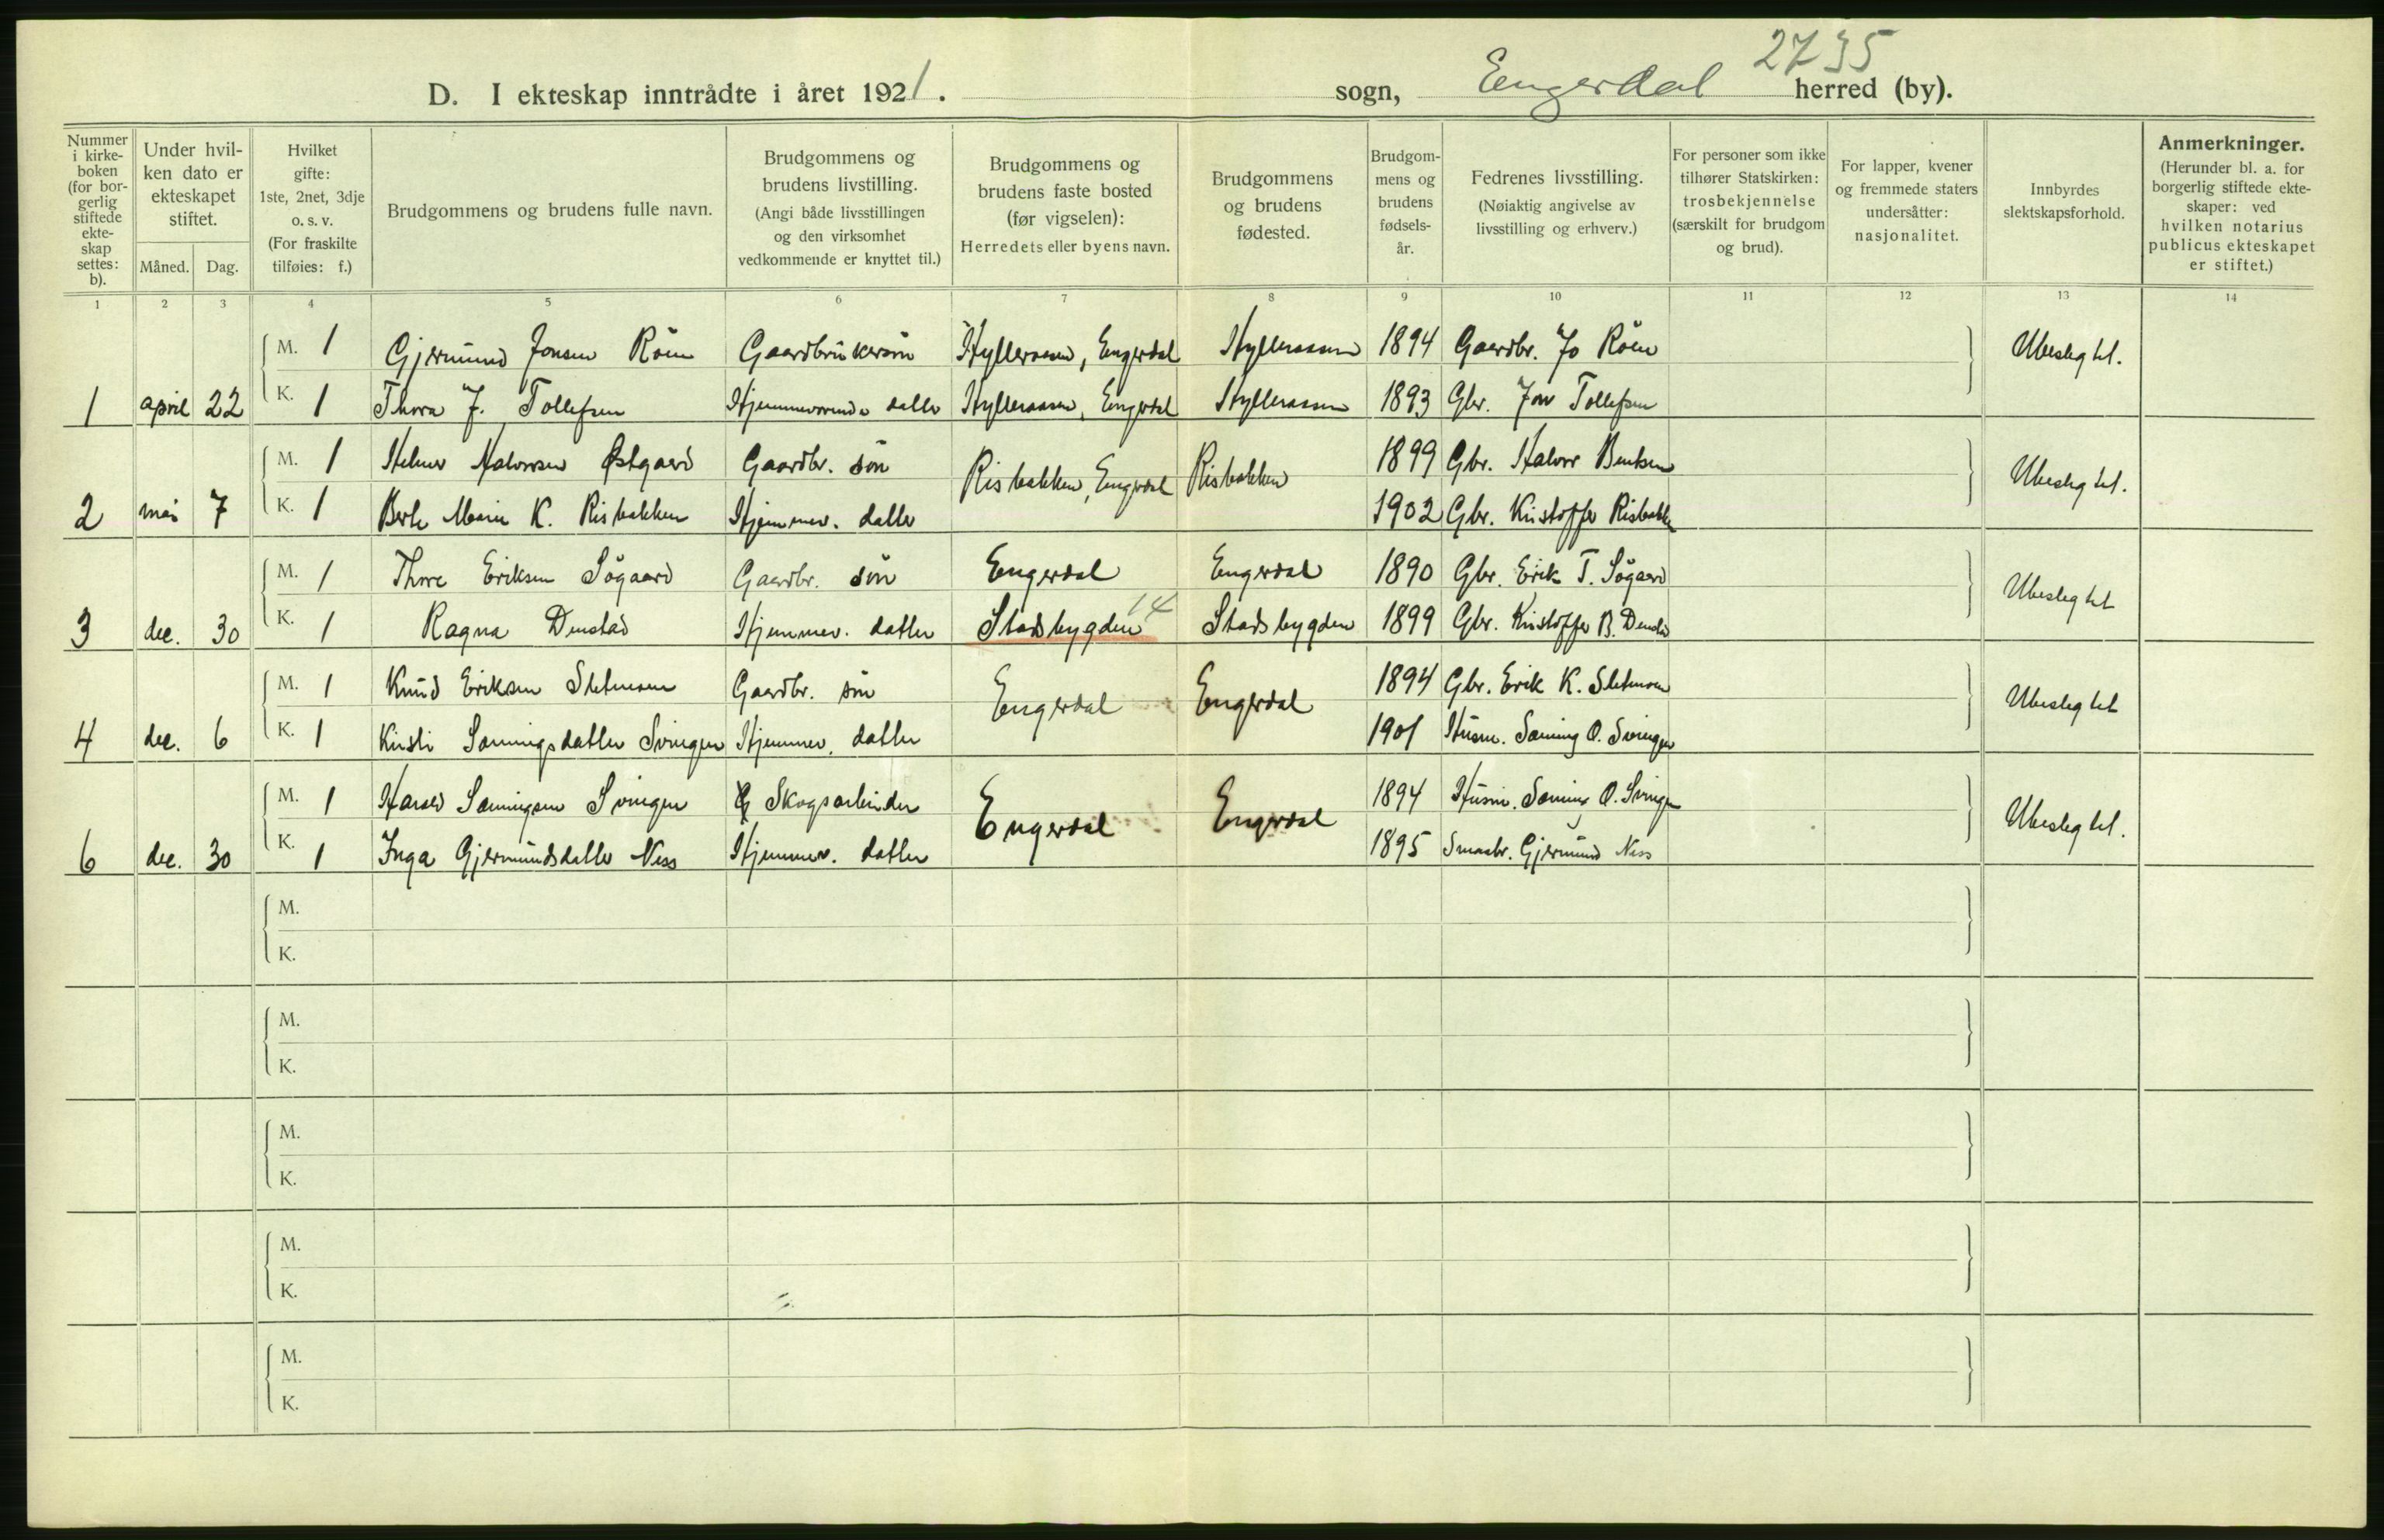 2735
D. I ekteskap inntrådte i året 1921. sogn, Engerdal herred (by).
Nummer i kirke-boken (for bor-gerlig stiftede ekte-skap settes: b).
Under hvil-ken dato er ekteskapet stiftet.
Måned. Dag.
Hvilket gifte: 1ste, 2net, 3dje o. s. v. (For fraskilte tilføies: f.)
Brudgommens og brudens fulle navn.
Brudgommens og brudens livstilling. (Angi både livsstillingen og den virksomhet vedkommende er knyttet til.)
Brudgommens og brudens faste bosted (før vigselen): Herredets eller byens navn.
Brudgommens og brudens fødested.
Brudgom-mens og brudens fødsels-år.
Fedrenes livsstilling. (Nøiaktig angivelse av livsstilling og erhverv.)
For personer som ikke tilhører Statskirken: trosbekjennelse (særskilt for brudgom og brud).
For lapper, kvener og fremmede staters undersåtter: nasjonalitet.
Innbyrdes slektskapsforhold.
Anmerkninger. (Herunder bl. a. for borgerlig stiftede ekte-skaper: ved hvilken notarius publicus ekteskapet er stiftet.)
1 2 3 4 5 6 7 8 9 10 11 12 13 14
M. 1 Gjermund Jonsen Röen Gaardbrukersön Hylleraasen, Engerdal Hylleraasen 1894 Gaardbr. Jo Röen Ubeslegtet.
1 april 22 K. 1 Thora J. Tollefsen Hjemmeværende datter Hylleraasen, Engerdal Hylleraasen 1893 Gbr. Jon Tollefsen
M. 1 Helmer Halvorsen Østgaard Gaardbr. sön Risbakken, Engerdal Risbakken 1899 Gbr. Halvor Bentsen Ubeslegtet.
2 mai 7 K. 1 Berte Marie K. Risbakken Hjemmev. datter 1902 Gbr. Kristoffer Risbakken
M. 1 Thore Eriksen Sögaard Gaardbr. sön Engerdal Engerdal 1890 Gbr. Erik T. Sögaard Ubeslegtet
3 dec. 30 K. 1 Ragna Denstad Hjemmev. datter Stadsbygden 14 Stadsbygden 1899 Gbr. Kristoffer B. Denstad
M. 1 Knud Eriksen Sletmoen Gaardbr. sön Engerdal Engerdal 1894 Gbr. Erik K. Sletmoen Ubeslegtet
4 dec. 6 K. 1 Kirsti Sæmingsdatter Svingen Hjemmev. datter 1901 Husm. Sæming O. Svingen
M. 1 Harald Sæmingsen Svingen Skogsarbeider Engerdal Engerdal 1894 Husm. Sæming O. Svingen Ubeslegtet.
6 dec. 30 K. 1 Inga Gjermundsdatter Næss Hjemmev. datter 1895 Smaabr. Gjermund Næss
M.
K.
M.
K.
M.
K.
M.
K.
M.
K.